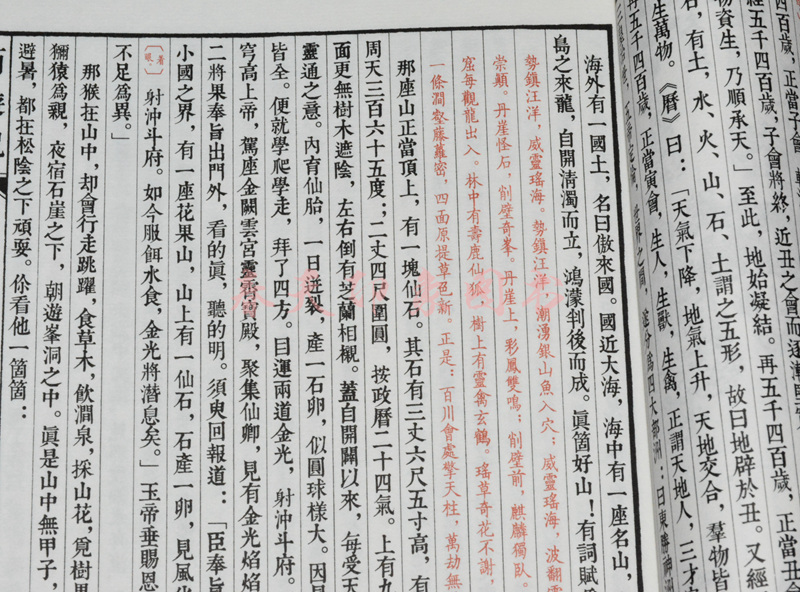 四百歲，正當子會
經五千四百歲，正當子會將終，近丑之會而逐漸
物資生，乃順承天。」至此，地始凝結。再五千四百歲，正當丑會
有土，水、火、山、石、土謂之五形，故曰地辟於丑。又經
生萬物。《曆》曰：「天氣下降，地氣上升，天地交合，羣物皆
再五千四百歲，正當寅會，生人，生獸，生禽，正謂天地人，三才
世界之間，遂分爲四大部洲：曰東勝神洲
海外有一國土，名曰傲來國。國近大海，海中有一座名山，
島之來龍，自開清濁而立，鴻濛判後而成。眞箇好山！有詞賦
勢鎮汪洋，威靈瑤海。勢鎮汪洋，潮湧銀山魚入穴；威靈瑤海，波翻雪
崇巔。丹崖怪石，削壁奇峯。丹崖上，彩鳳雙鳴；削壁前，麒麟獨臥。
窟每觀龍出入。林中有壽鹿仙狐，樹上有靈禽玄鶴。瑤草奇花不謝，
一條澗壑藤蘿密，四面原堤草色新。正是：百川會處擎天柱，萬劫無
那座山正當頂上，有一塊仙石。其石有三丈六尺五寸高，有
周天三百六十五度；二丈四尺圍圓，按政曆二十四氣。上有九
面更無樹木遮陰，左右倒有芝蘭相襯。蓋自開闢以來，每受天
靈通之意。內育仙胎，一日迸裂，產一石卵，似圓球樣大。因見
皆全。便就學爬學走，拜了四方。目運兩道金光，射沖斗府。
穹高上帝，駕座金闕雲宮靈霄寶殿，聚集仙卿，見有金光焰焰
二將果奉旨出門外，看的眞，聽的明。須臾回報道：「臣奉旨
小國之界，有一座花果山，山上有一仙石，石產一卵，見風化
〔着眼〕射沖斗府。如今服餌水食，金光將潛息矣。」玉帝垂賜恩
不足爲異。」
那猴在山中，却會行走跳躍，食草木，飲澗泉，採山花，覓樹果
獼猿爲親，夜宿石崖之下，朝遊峯洞之中。眞是山中無甲子，
避暑，都在松陰之下頑耍。你看他一箇箇：